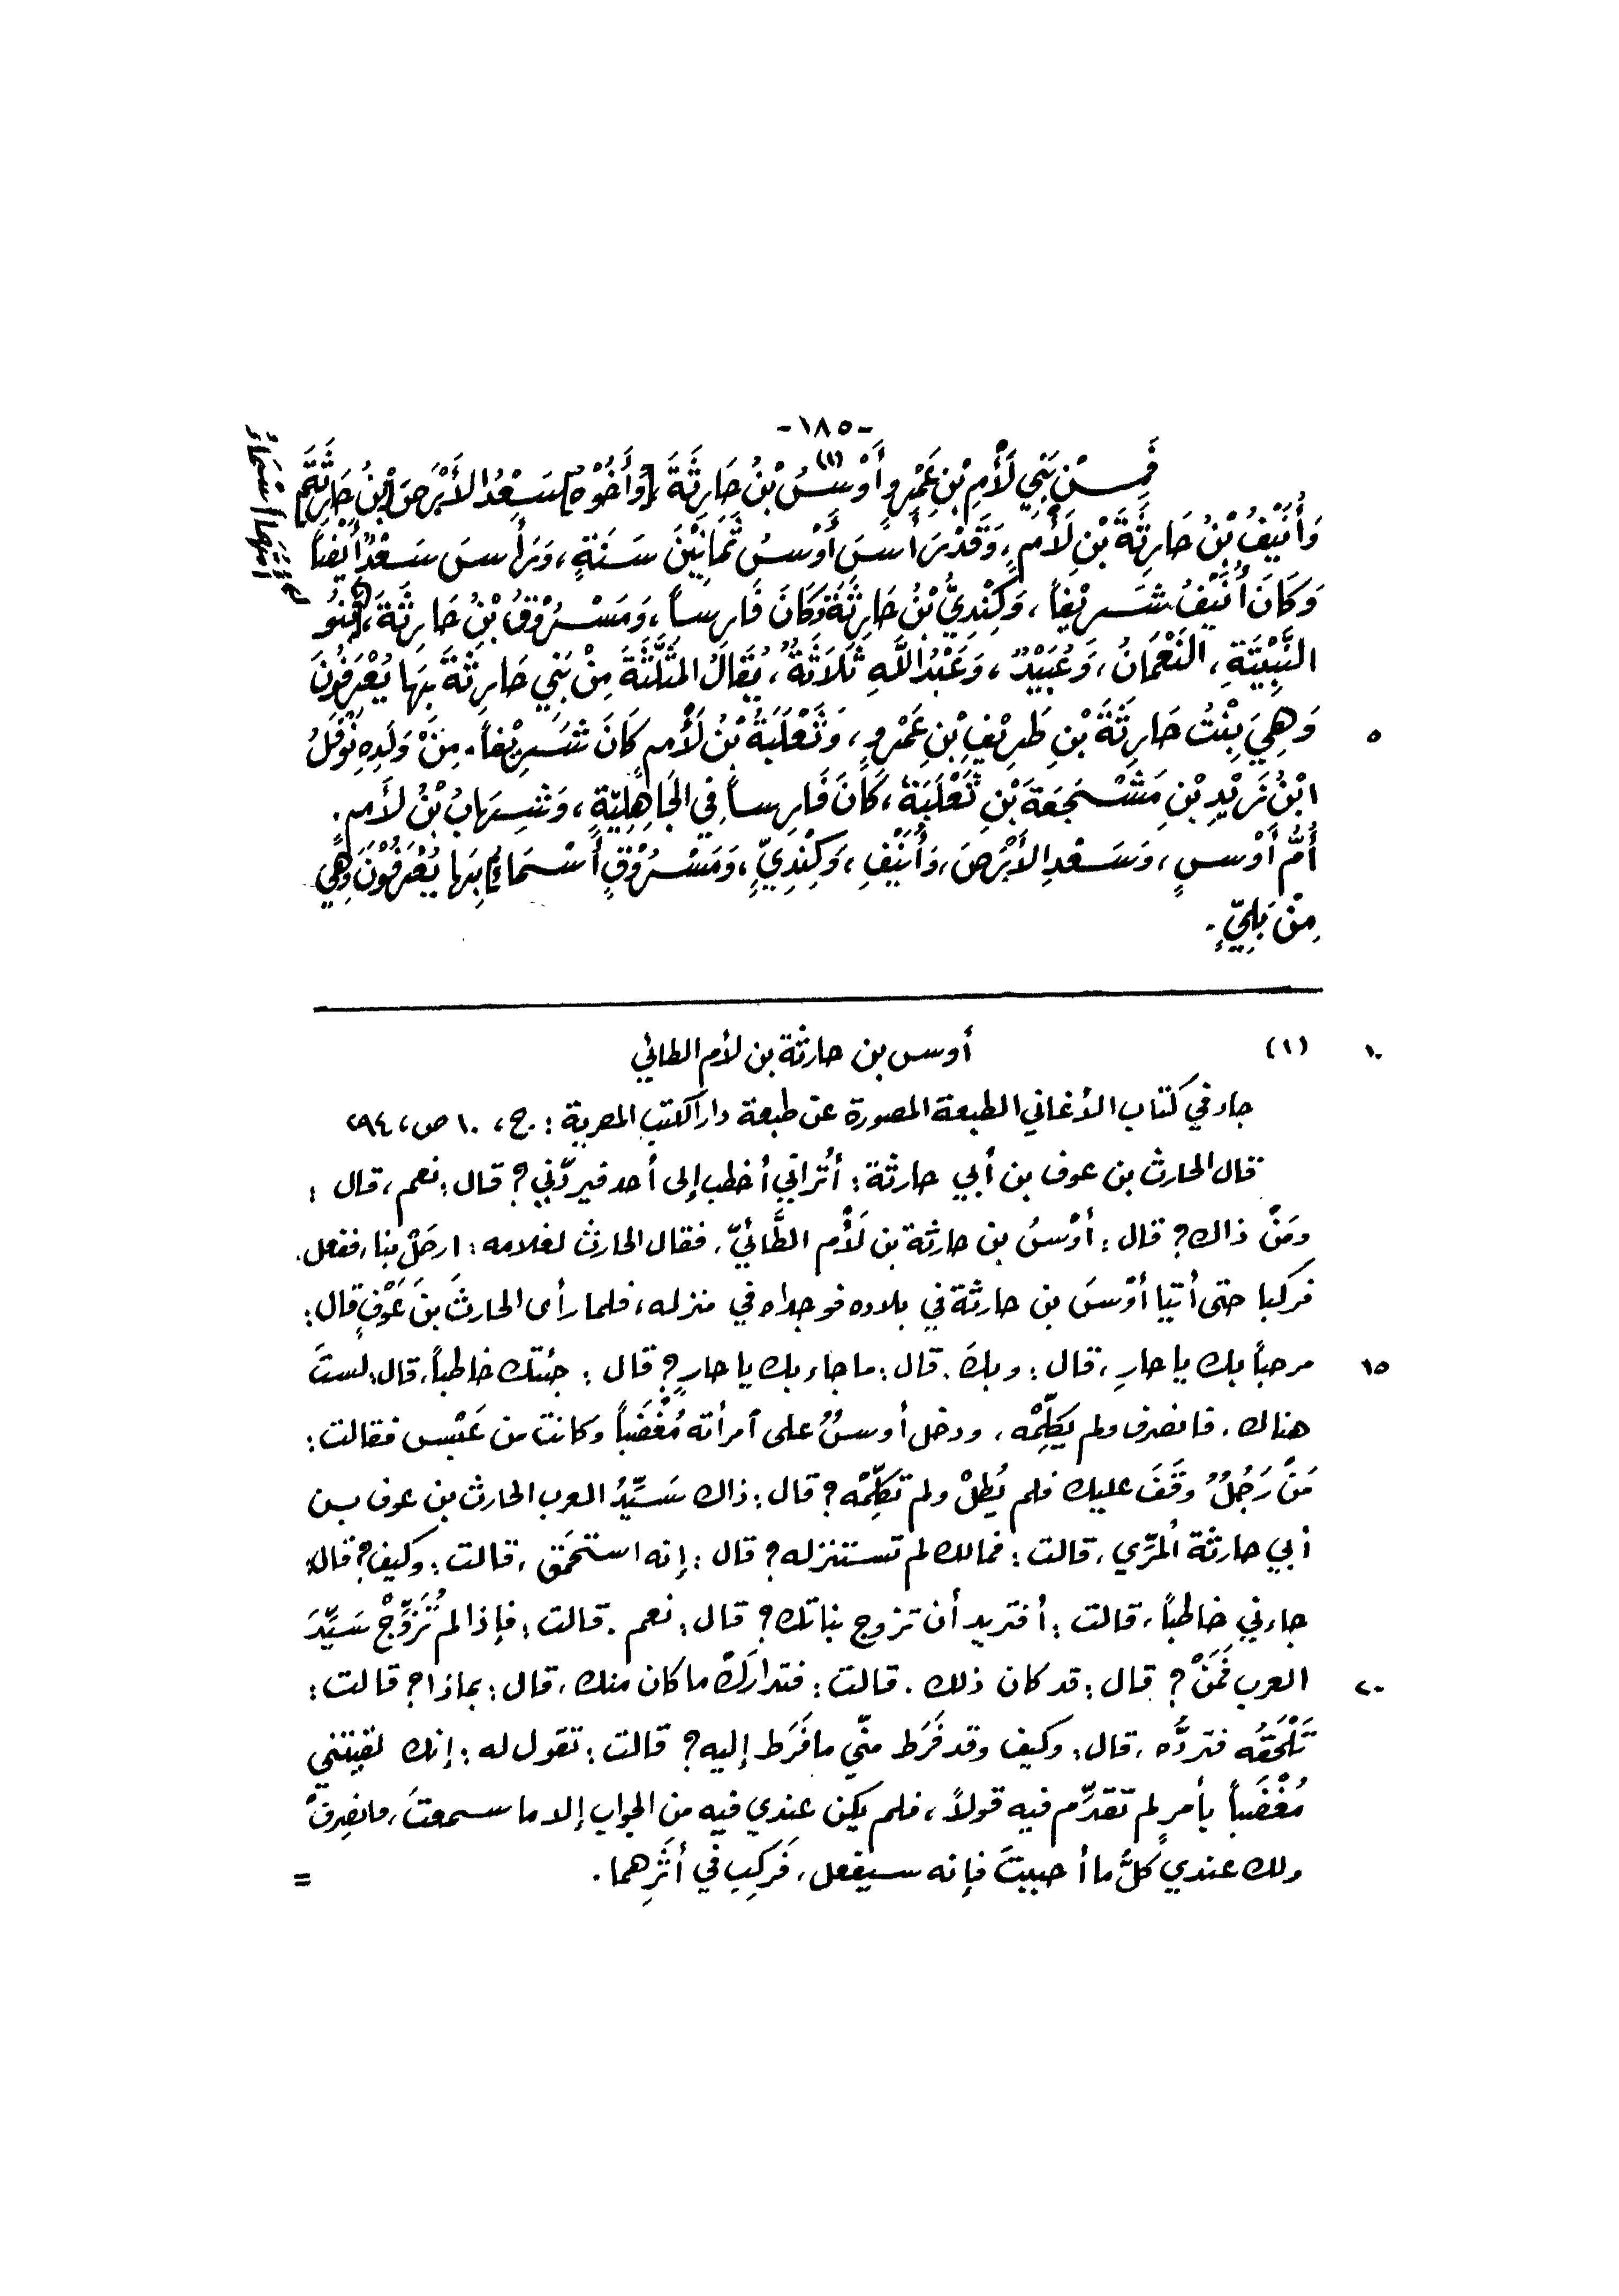 -١٨٥-
فَمِنْ بَنِي لَأْمِ بْنِ عَمْرٍو أَوْسُ (١) بْنُ حَارِثَةَ، [وَأَخُوْهُ] سَعْدُ الأَبْرَصُ [بْنُ حَارِثَةَ]
وَأُنَيْفُ بْنُ حَارِثَةَ بْنِ لَأْمٍ، وَقَدْ رَأسَ أَوْسُ ثَمَانِيْنَ سَنَةٍ، وَرَأسَ سَعْدٌ أَيْضاً
وَكَانَ أُنَيْفُ شَرِيْفاً، وَكِنْدِيُّ بْنُ حَارِثَةَ وَكَانَ فَارِساً، وَمَسْرُوْقُ بْنُ حَارِثَةَ، بَنُو
النَّبِيْتَةِ، النُعْمَانُ، وَعُبَيْدٌ، وَعَبْدُ اللَّهِ ثَلَاثَةٌ، يُقَالُ المَثَلَّثَةَ مِنْ بَنِي حَارِثَةَ بِهَا يُعْرَفُونَ
وَهِيَ بِنْتُ حَارِثَةَ بْنِ طَرِيْفِ بْنِ عَمْرٍو، وَثَعْلَبَةُ بْنُ لَأْمٍ كَانَ شَرِيْفاً. مِنْ وَلَدِهِ نَوْفَلُ
٥
ابْنُ زَيْدِ بْنِ مَشْجَعَةَ بْنِ ثَعْلَبَةَ، كَانَ فَارِساً فِي الجَاهِلِيّةِ، وَشِهَابُ بْنُ لأَمٍ.
أُمُّ أَوْسٍ، وَسَعْدِ الأَبْرَصَ، وَأُنَيْفِ، وَكِنْدِيٍّ، وَمَسْرُوْقٍ أَسْمَاءُ بِهَا يُعْرَفُوْنَ وَهِي
مِنْ بَلِيٍّ.
١٠
(١) أوس بن حارثة بن لأم الطائي
جاء في كتاب الأغاني الطبعة المصورة عن طبعة دار الكتب المصرية: ج، ١٠ ص، ٢٩٤
قال الحارث بن عوف بن أبي حارثة: أتُراني أخطب إلى أحد فيردّني؟ قال: نعم، قال:
ومَنْ ذاك؟ قال: أوْسُ بن حارثة بن لَأْم الطَّائيّ. فقال الحارث لغلامه: ارحَلْ بنا، ففعل.
فركبا حتى أتيا أوْسَ بن حارثة في بلاده فوجداه في منزله، فلما رأى الحارثَ بنَ عَوْفٍ قال:
مرحباً بك يا حارِ، قال: وبكَ. قال: ما جاء بك يا حارِ؟ قال: جئتك خاطباً، قال: لستَ
١٥
هناك. فانصرف ولم يكلِّمْه، ودخل أوسٌ على امرأته مُغْضَباً وكانت من عَبْس فقالت:
مَنْ رَجُلٌ وقَفَ عليك فلم يُطِلْ ولم تكلِّمْه؟ قال: ذاك سَيِّدُ العرب الحارث بن عوف بن
أبي حارثة المُرِّي، قالت: فمالك لم تستنزله؟ قال: إنه استحْمَق، قالت: وكيف؟ قال:
جاءني خاطباً، قالت: أفتريد أن تزوج بناتك؟ قال: نعم. قالت: فإذا لم تُزَوِّجْ سَيِّدَ
العرب فمَنْ؟ قال: قد كان ذلك. قالت: فتدارَكْ ما كان منك، قال: بماذا؟ قالت:
٢٠
تَلْحَقُه فتردُّه، قال: وكيف وقد فَرَط منّي ما فَرَط إليه؟ قالت: تقول له: إنك لقيتني
مُغْضَباً بأمرٍ لم تقدِّم فيه قولاً، فلم يكن عندي فيه من الجواب إلا ما سمعتَ، فانصِرفْ
ولك عندي كلُّ ما أحببتَ فإنه سيفعل، فَركِب في أثَرِهما.
=